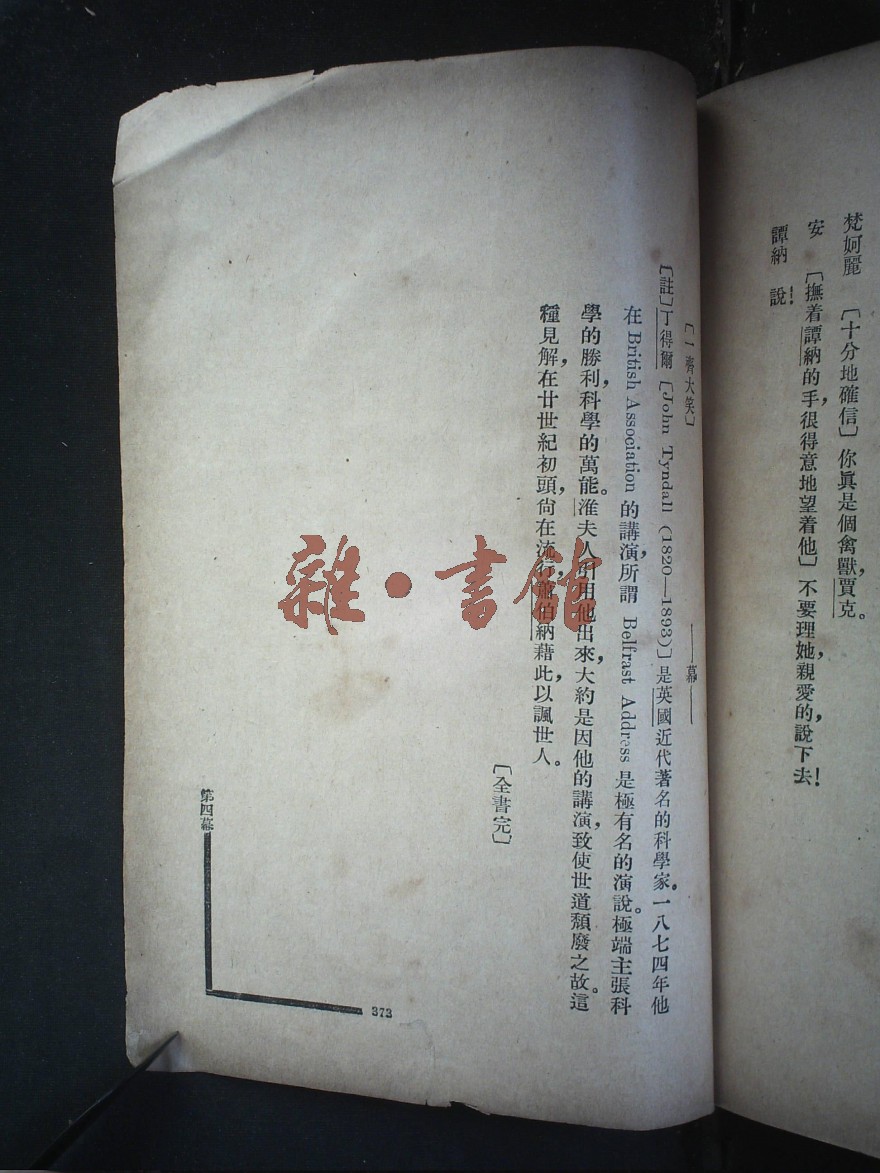 梵妸麗 〔十分地確信〕你眞是個禽獸,賈克。
安 〔撫着譚納的手,很得意地望着他〕不要理她,親愛的,說下去!
譚納 說!
〔一齊大笑〕
——幕——
〔註〕丁得爾〔John Tyndall (1820—1893)〕是英國近代著名的科學家。一八七四年他
在 British Association 的講演,所謂 Belfrast Address 是極有名的演說。極端主張科
學的勝利,科學的萬能。淮夫人引用他出來,大約是因他的講演,致使世道頹廢之故。這
種見解,在廿世紀初頭,尙在流行,蕭伯納藉此,以諷世人。
〔全書完〕
第四幕
373
雜·書館